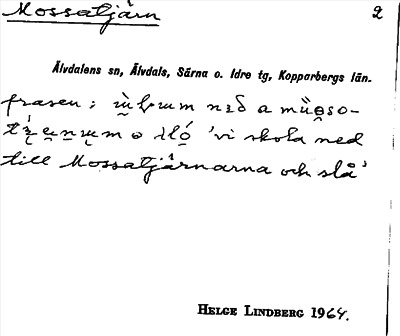 Mossatjärn 2
Älvdalens sn, Älvdals, Särna o. Idre tg, Kopparbergs län.
frasen:
'vi skola ned
till Mossatjärnarna och slå'
HELGE LINDBERG 1964.